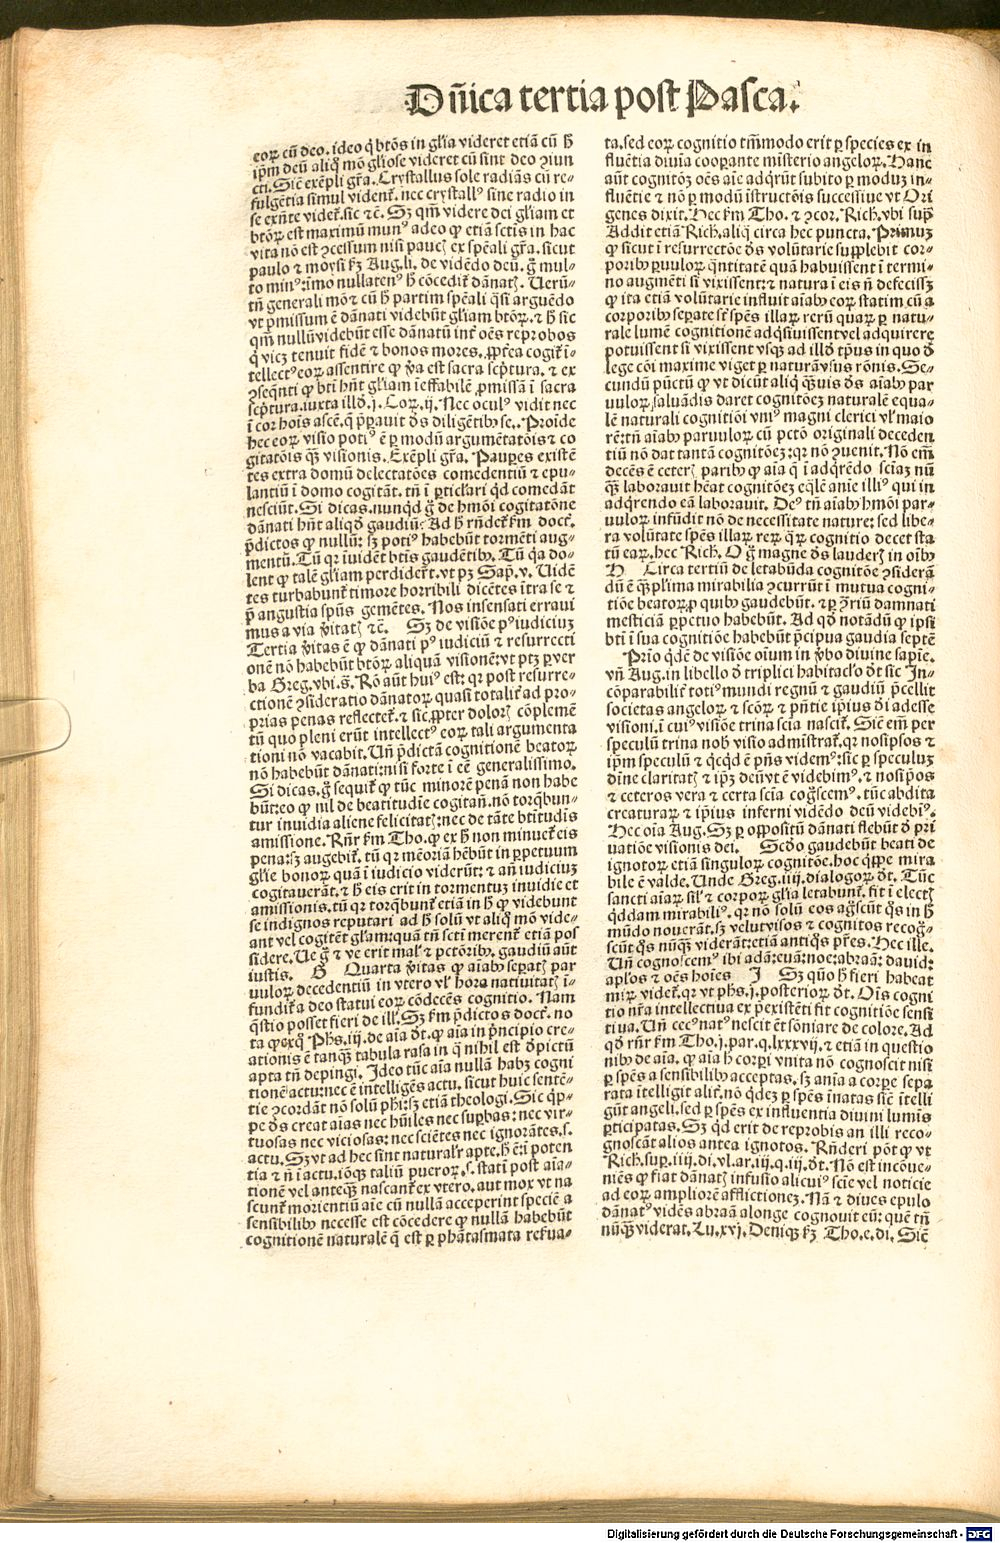 Dñica tertia post Pasca.
eoꝝ cũ deo. ideo q̇ btõs in gl̃ia videret etiã cũ ħ
ip̃m deũ aliq̇ mõ gl̃iose videret cũ sint deo ꝯiun
cti. Sic̃ exẽpli gr̃a. Crystallus sole radiãs cũ re⸗
fulgẽtia simul vident̃. nec crystallꝰ sine radio in
se exñte videt̃. sic ⁊ c̃. Sꝫ qm̃ videre dei gl̃iam et
btõꝝ est maximũ munꝰ adeo ꝙ etiã sctis in hac
vita nõ est ꝯcessum nisi paucꝭ ex sp̃eali gr̃a. sicut
paulo ⁊ moysi fꝫ Aug. li. de vidẽdo deũ. g̃ mul⸗
to minꝰ: ĩmo nullatenꝰ ħ cõcedit̃ dãnatꝭ. Uerũ⸗
tñ generali mõ ⁊ cũ ħ partim sp̃eali q̃si arguẽdo
vt p̃missum ẽ dãnati videbũt gl̃iam btõꝝ. ⁊ ħ sic
qm̃ nullũ videbũt esse dãnatũ int̃ oẽs reprobos
q̇ vicꝫ tenuit fidẽ ⁊ bonos mores. ꝓpt̃ea cogit̃ ĩ⸗
tellectꝰ eoꝝ assentire ꝙ ṽa est sacra sc̃ptura. ⁊ ex
ꝯseq̃nti ꝙ bti hñt gl̃iam ĩeffabilẽ ꝓmissã ĩ sacra
sc̃ptura. iuxta illd̃. j. Coꝝ. ij. Nec oculꝰ vidit nec
ĩ cor hoĩs ascẽ. q̃ p̃parauit d̃s diligẽtibꝰ se. Proĩde
hec eoꝝ visio potiꝰ ẽ ꝑ modũ argumẽtatõis ⁊ co
gitatõis q̃ꝫ visionis. Exẽpli gr̃a. Pauꝑes existẽ
tes extra domũ delectatões comedentiũ ⁊ epu⸗
lantiũ ĩ domo cogitãt. tñ ĩ ꝑticl̃ari qd̃ comedãt
nesciũt. Si dicas. nunqd̃ g̃ de hmõi cogitatõne
dãnati hñt aliqd̃ gaudiũ: Ad ħ rñdet̃ fm̃ doct̃.
p̃dictos ꝙ nullũ: sꝫ potiꝰ habebũt tormẽti aug⸗
mentũ. Tũ qꝛ ĩuidẽt btĩs gaudẽtibꝰ. Tũ q̃a do⸗
lent ꝙ talẽ gl̃iam perdider̃t. vt pꝫ Sap̃. v. Uidẽ
tes turbabunt̃ timore horribili dicẽtes ĩtra se ⁊
p̃ angustia sp̃us gemẽtes. Nos insensati erraui
mus a via ṽitatꝭ ⁊ c̃. Sꝫ de visiõe pꝰ iudiciuꝫ
Tertia ṽitas ẽ ꝙ dãnati pꝰ iudiciũ ⁊ resurrecti
onẽ nõ habebũt btõꝝ aliquã visionẽ: vt ptꝫ ꝑ ver
ba Greg. vbi. s̃. Rõ aũt huiꝰ est: qꝛ post resurre⸗
ctionẽ ꝯsideratio dãnatoꝝ quasi totalit̃ ad pro⸗
prias penas reflectet̃. ⁊ sic ꝓpter dolorꝭ cõplemẽ
tũ quo pleni erũt intellectꝰ eoꝝ tali argumenta
tioni nõ vacabit. Uñ p̃dictã cognitionẽ beatoꝝ
nõ habebũt dãnati: nisi forte ĩ eẽ generalissimo.
Si dicas. g̃ sequit̃ ꝙ tũc minorẽ penã non habe
bũt: eo ꝙ nil de beatitudĩe cogitãñ. nõ torq̃bun⸗
tur inuidia aliene felicitatꝭ: nec de tãte btĩtudĩs
amissione. Rñr fm̃ Tho. ꝙ ex ħ non minuet̃ eis
pena: sꝫ augebit̃. tũ qꝛ mẽoriã hẽbũt in ꝑpetuum
gl̃ie bonoꝝ quã ĩ iudicio viderũt: ⁊ añ iudiciuꝫ
cogitauerãt. ⁊ ħ eis erit in tormentuꝫ inuidie et
amissionis. tũ qꝛ torq̃bunt̃ etiã in ħ ꝙ videbunt
se indignos reputari ad ħ solũ vt aliq̃ mõ vide⸗
ant vel cogitẽt gl̃iam: quã tñ scti merent̃ etiã pos
sidere. Ue g̃ ⁊ ve erit mal̃ ⁊ pctõribꝰ. gaudiũ aũt
iustis. G Quarta ṽitas ꝙ aĩabꝰ sep̃atꝭ par
uuloꝝ decedentiũ in vtero vl̃ hora natiuitatꝭ ĩ⸗
fundit̃ a deo statui eoꝝ cõdecẽs cognitio. Nam
q̃stio posset fieri de illꝭ. Sꝫ fm̃ p̃dictos doct̃. no
ta ꝙ exq̃ Ph̃s. iij. de aĩa d̃t. ꝙ aĩa in p̃ncipio cre⸗
ationis ẽ tanq̃ꝫ tabula rasa in q̃ nihil est d̃pictũ
apta tñ depingi. Ideo tũc aĩa nullã habꝫ cogni
tionẽ actu: nec ẽ intelligẽs actu. sicut huic sentẽ⸗
tie ꝯcordãt nõ solũ ph̃i: sꝫ etiã theologi. Sic q̃ꝑ⸗
pe d̃s creat aĩas nec hũiles nec suꝑbas: nec vir⸗
tuosas nec viciosas: nec sciẽtes nec ignorãtes. s.
actu. Sꝫ vt ad hec sint natural̃r apte. ħ ẽ: ĩ poten
tia ⁊ ñ ĩ actu. iõqꝫ taliũ pueroꝝ. s. statĩ post aĩa⸗
tionẽ vel anteq̃ꝫ nascant̃ ex vtero. aut mox vt na
scunt̃ morientiũ aĩe cũ nullã acceperint speciẽ a
sensibilibꝰ necesse est cõcedere ꝙ nullã habebũt
cognitionẽ naturalẽ q̃ est ꝑ phãtasmata resua⸗
ta. sed eoꝝ cognitio tm̃modo erit ꝑ species ex in
fluẽtia diuĩa cooꝑante mĩsterio angeloꝝ. Hanc
aũt cognitõꝫ oẽs aĩe adq̃rũt subito ꝑ moduꝫ in⸗
fluẽtie ⁊ nõ ꝑ modũ ĩstructõis successiue vt Ori
genes dixit. Hec fm̃ Tho. ⁊ ꝯcor. Rich. vbi sup̃
Addit etiã Rich. aliq̃ circa hec puncta. Primuꝫ
ꝙ sicut ĩ resurrectõe d̃s volũtarie supplebit cor⸗
poribꝰ ꝑuuloꝝ q̃ntitatẽ quã habuissent ĩ termi⸗
no augmẽti si vixissent: ⁊ natura ĩ eis ñ defecissꝫ
ꝙ ita etiã volũtarie influit aĩabꝰ eoꝝ statim cũ a
corporibꝰ sep̃ate sũt sp̃es illaꝝ rerũ quaꝝ ꝑ natu⸗
rale lumẽ cognitionẽ adq̃siuissent vel adquirere
potuissent si vixissent vsqꝫ ad illd̃ tp̃us in quo d̃
lege cõi maxime viget ꝑ naturã vsus rõnis. Se⸗
cundũ pũctũ ꝙ vt dicũt aliq̃ q̃ꝫuis d̃s aĩabꝰ par
uuloꝝ saluãdis daret cognitõeꝫ naturalẽ equa⸗
lẽ naturali cognitiõi vniꝰ magni clerici vl̃ maio
rẽ: tñ aĩabꝰ paruuloꝝ cũ pctõ originali deceden
tiũ nõ dat tantã cognitõeꝫ: qꝛ nõ ꝯuenit. Nõ em̃
decẽs ẽ ceterꝭ paribꝰ ꝙ aĩa q̃ ĩ adq̃rẽdo sciaꝫ nũ
q̃ꝫ laborauit hẽat cognitõeꝫ eq̃lẽ anie illiꝰ qui in
adq̃rendo eã laborauit. Deꝰ tñ aĩabꝰ hmõi par⸗
uuloꝝ infũdit nõ de necessitate nature: sed libe⸗
ra volũtate sp̃es illaꝝ reꝝ q̃ꝝ cognitio decet sta
tũ eaꝝ. hec Rich. O g̃ magne d̃s lauderꝭ in oĩbꝰ
H Circa tertiũ de letabũda cognitõe ꝯsiderã
dũ ẽ q̃ꝫ plima mirabilia ꝯcurrũt ĩ mutua cogni⸗
tiõe beatoꝝ: ꝑ quibꝰ gaudebũt. ⁊ ꝑ ꝯ̃riũ damnati
mesticiã ꝑpetuo habebũt. Ad qd̃ notãdũ ꝙ ipsi
btĩ ĩ sua cognitiõe habebũt p̃cipua gaudia septẽ
Prĩo q̃dẽ de visiõe oĩum in ṽbo diuine sapĩe.
vñ Aug. in libello d̃ triplici habitacl̃o d̃t sic. In⸗
cõparabilit̃ totiꝰ mundi regnũ ⁊ gaudiũ p̃cellit
societas angeloꝝ ⁊ scõꝝ ⁊ pñtie ip̃ius d̃i adesse
visioni. ĩ cuiꝰ visiõe trina scia nascit̃. Sic̃ em̃ per
speculũ trina nob̃ visio admĩstrat̃. qꝛ nosip̃sos ⁊
ip̃m speculũ ⁊ qc̃qd̃ ẽ p̃ñs videmꝰ: sic ꝑ speculuꝫ
diĩne claritatꝭ ⁊ ip̃ꝫ deũ vt ẽ videbimꝰ. ⁊ nosip̃os
⁊ ceteros vera ⁊ certa scĩa cog̃scemꝰ. tũc abdita
creaturaꝝ ⁊ ip̃ius inferni vidẽdo deũ videbĩꝰ.
Hec oĩa Aug. Sꝫ ꝑ oppositũ dãnati flebũt d̃ pri
uatiõe visionis dei. Scd̃o gaudebũt beati de
ignotoꝝ etiã singuloꝝ cognitõe. hoc q̃ꝑpe mira
bile ẽ valde. Unde Greg. iiij. dialogoꝝ d̃t. Tũc
sancti aĩaꝝ sil̃ ⁊ corpoꝝ gl̃ia letabunt̃. fit ĩ electꝭ
q̃ddam mirabiliꝰ. qꝛ nõ solũ eos ag̃scũt q̃s in ħ
mũdo nouerãt. sꝫ velut visos ⁊ cognitos recog̃⸗
scũt q̃s nũq̃ꝫ viderãt: etiã antiq̃s pr̃es. Hec ille.
Uñ cognoscemꝰ ibi adã: euã: noe: abraã: dauid:
apl̃os ⁊ oẽs hoĩes I Sꝫ quõ ħ fieri habeat
miꝝ videt̃. qꝛ vt ph̃s. j. posterioꝝ d̃t. Oĩs cogni
tio nr̃a intellectiua ex p̃existẽti fit cognitiõe sensi
tiua. Uñ cecꝰ natꝰ nescit etĩ sõniare de colore. Ad
qd̃ rñr fm̃ Tho. j. par. q. lxxxvij. ⁊ etiã in questio
nibꝰ de aĩa. ꝙ aĩa ħ corpi vnita nõ cognoscit nisi
ꝑ sp̃es a sensibilibꝰ acceptas. sꝫ anĩa a corꝑe sepa
rata ĩtelligit alit̃. nõ q̃dẽꝫ ꝑ sp̃es ĩnatas sic̃ ĩtelli
gũt angeli. sed ꝑ sp̃es ex influentia diuini lumĩs
ꝑticipatas. Sꝫ qd̃ erit de reprobis an illi reco⸗
gnoscãt alios antea ignotos. Rñderi põt ꝙ vt
Rich. sup̃. iiij. di. vl. ar. iij. q. iij. d̃t. Nõ est incõue⸗
niẽs ꝙ fiat dãnatꝭ infusio alicuiꝰ sciẽ vel noticie
ad eoꝝ ampliorẽ afflictioneꝫ. Nã ⁊ diues epulo
dãnatꝰ vidẽs abraã alonge cognouit eũ: quẽ tñ
nũq̃ꝫ viderat. Lu. xvj. Deniqꝫ fꝫ Tho. e. di. Sic̃
Digitalisierung gefördert durch die Deutsche Forschungsgemeinschaft - DFG